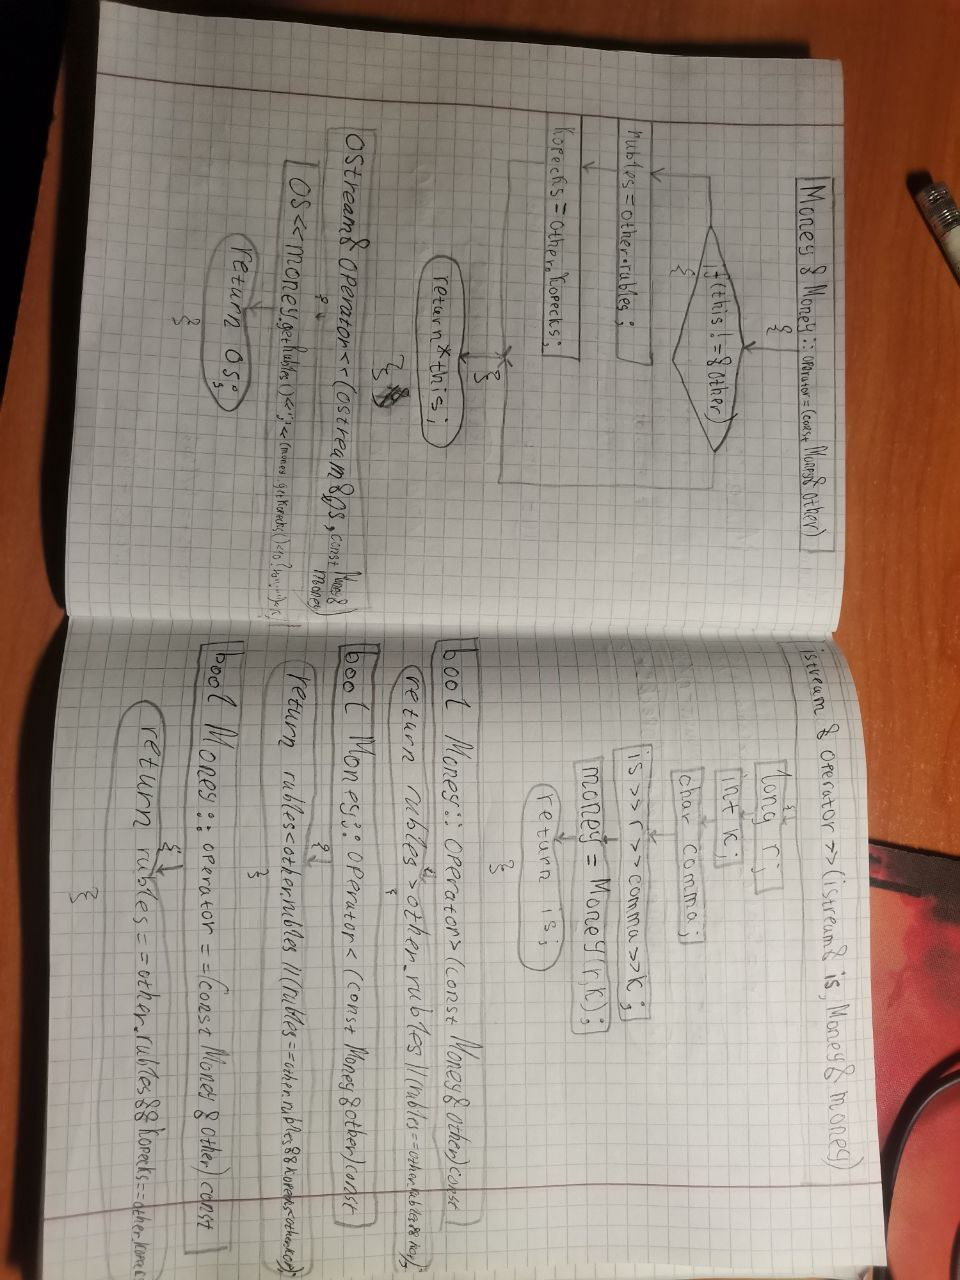 Money & Money::operator=(const Money& other)
{
if(this!=&other)
{
rubles=other.rubles;
kopecks=other.kopecks;
}
return*this;
}
ostream& operator<<(ostream& os, const Money& money)
{
os<<money.getRubles()<<','<<(money.getKopecks()<10?
return os;
}
istream & operator>>(istream& is, Money& money)
{
long r;
int k;
char comma;
is>>r>>comma>>k;
money = Money(r,k);
return is;
}
bool Money::operator>(const Money& other)const
{
return rubles>other.rubles||(rubles==other.rubles&&
}
bool Money::operator<(const Money& other)const
{
return rubles<other.rubles||(rubles==other.rubles&&kopecks<other.kop);
}
bool Money::operator==(const Money & other)const
{
return rubles==other.rubles&&kopecks==other.kopec
}